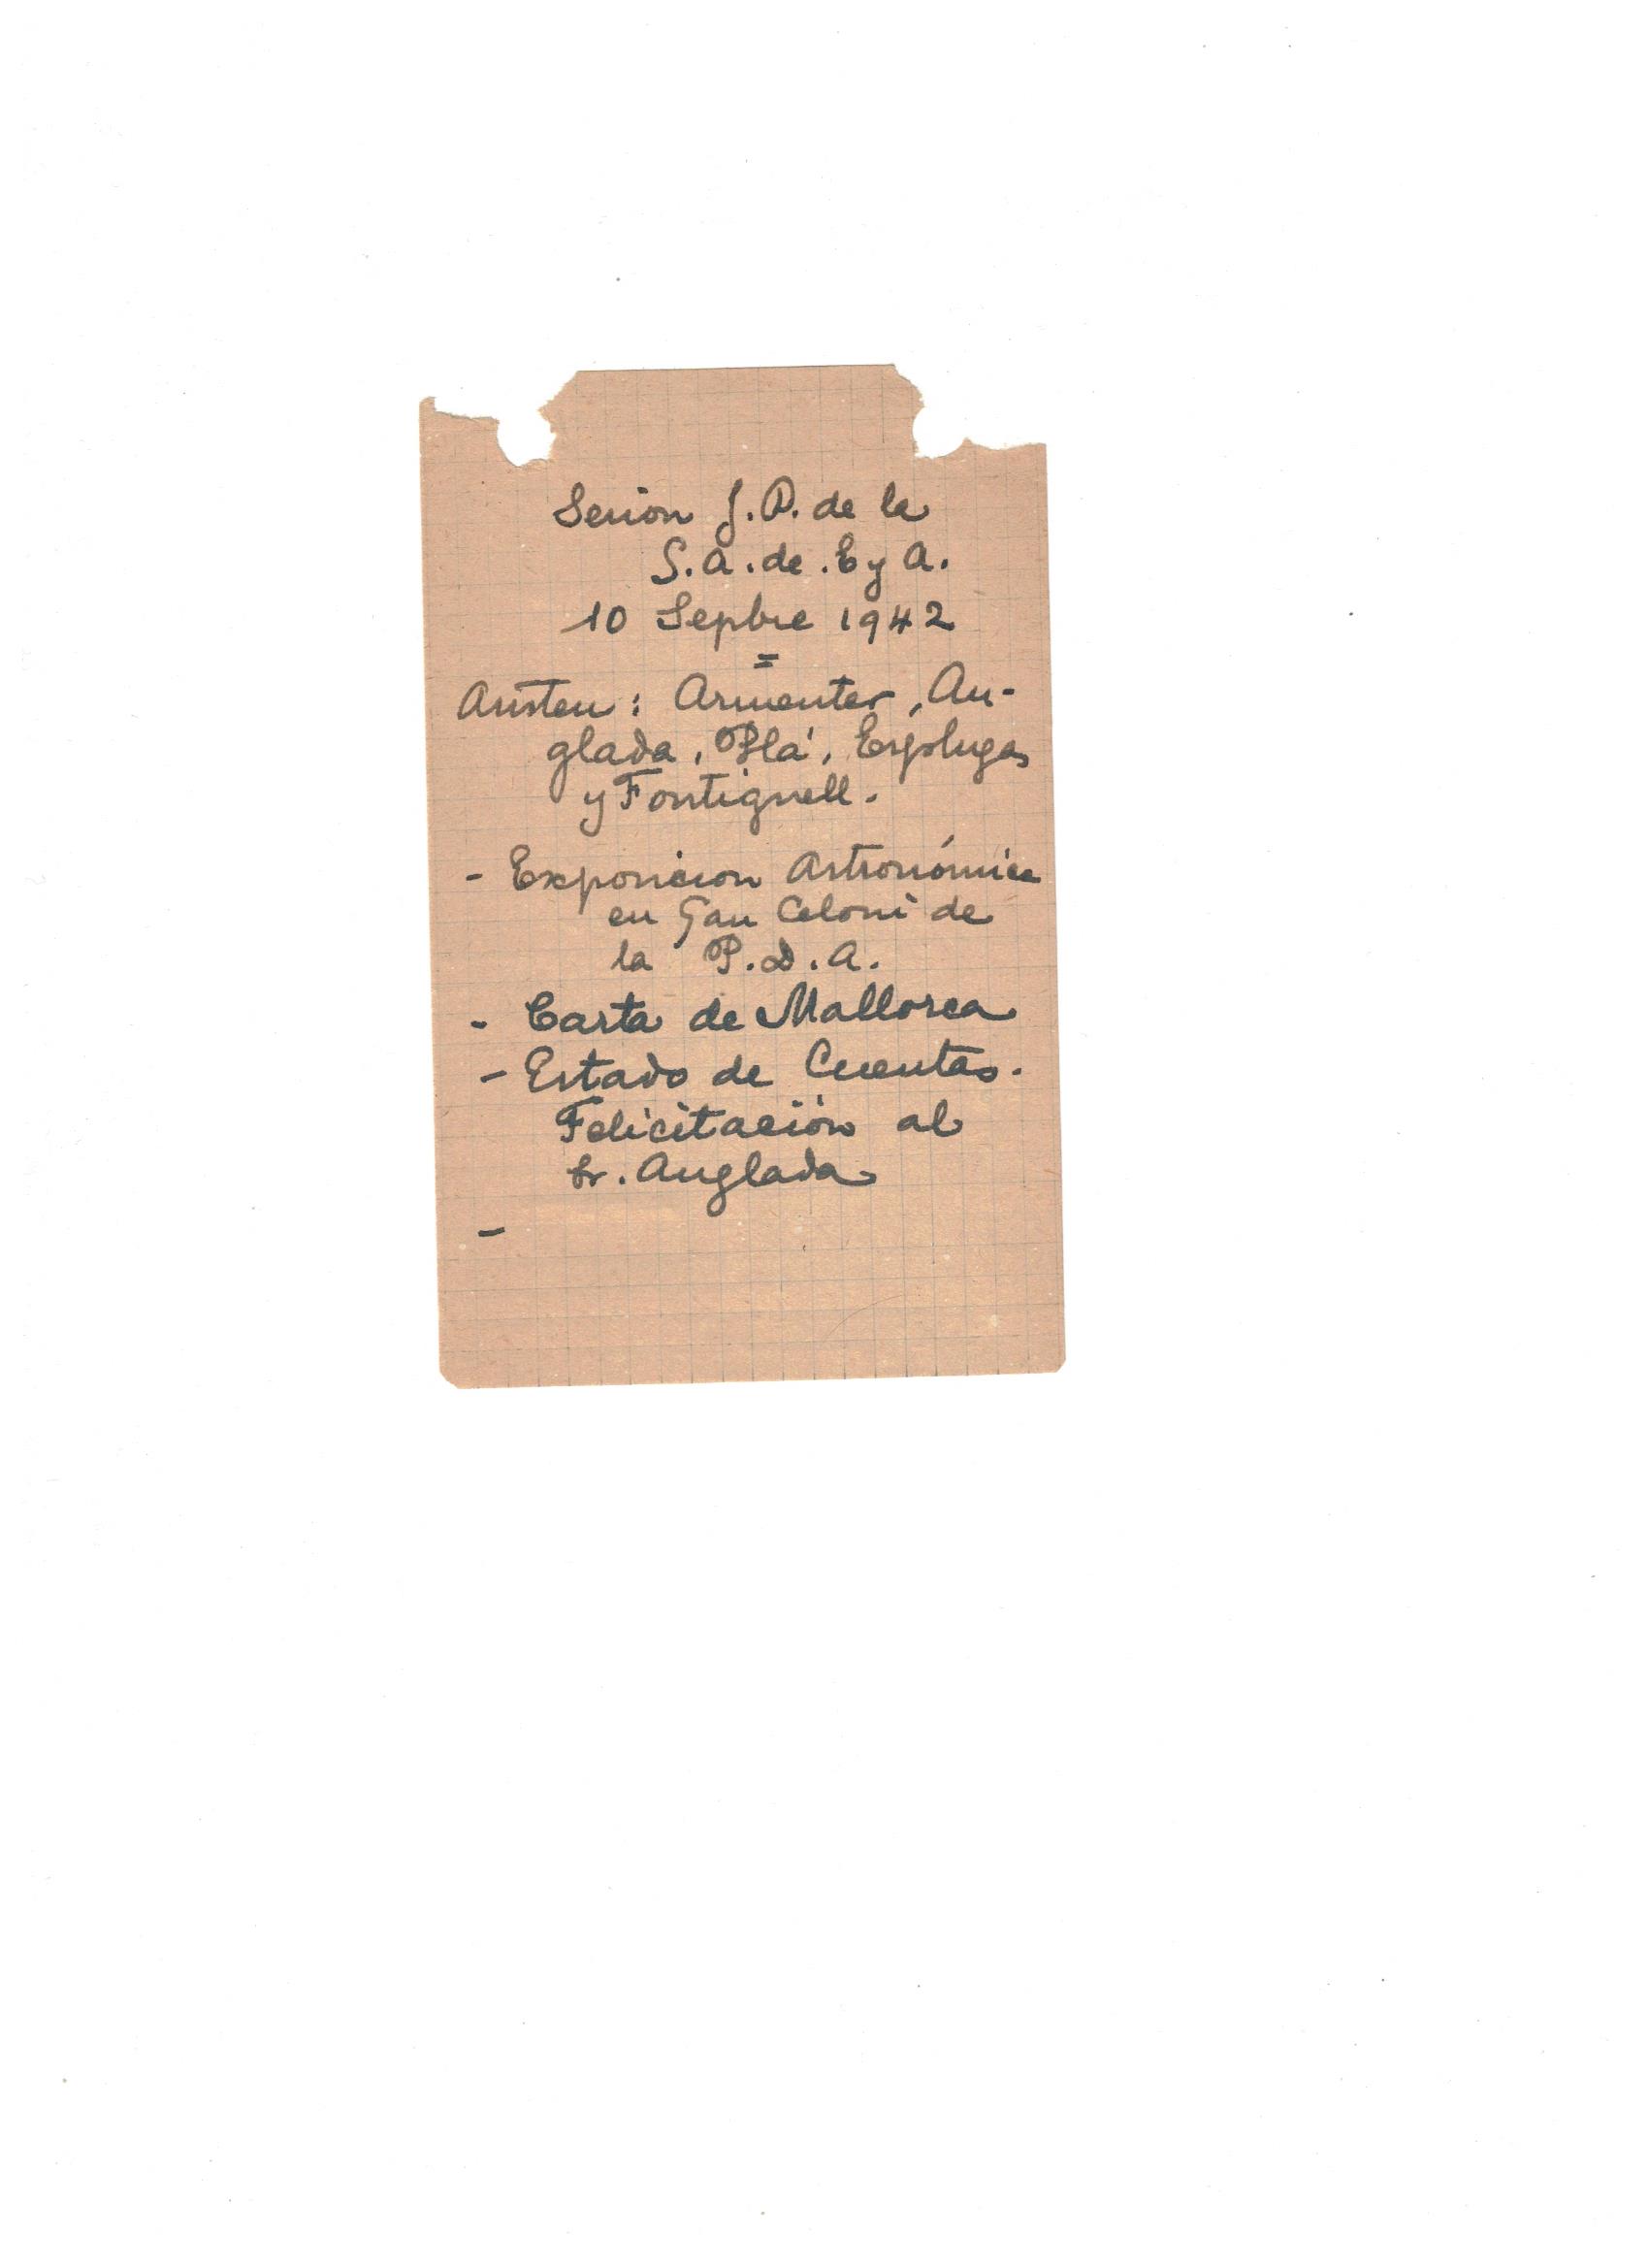 Sesion J.D. de la
S.A. de. E y A.
10 Sepbre 1942
=
Asisten: Armenter, An-
glada, Plá, Esplugas
y Fontignell.
- Exposicion Astronómica
en San Celoni de
la P.D.A.
- Carta de Mallorca
- Estado de Cuentas.
Felicitación al
Sr. Anglada
-